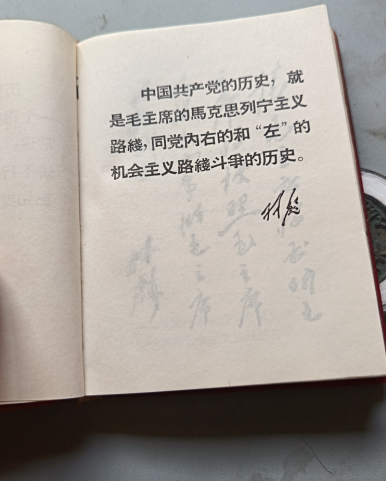 中国共产党的历史，就
是毛主席的馬克思列宁主义
路綫，同党内右的和“左”的
机会主义路綫斗爭的历史。
林彪